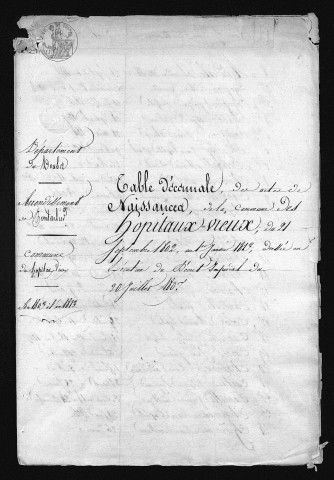 Département
du Doubs
Arrondissement
de Pontarlier
Commune
An 1802 et an 1813
Table décennale, des actes de
Naissances, de la commune des
hôpitaux vieux, du 21
Septembre 1802, au 1er Janvier 1813 dressée en
Exécution du Décret Impérial du
20 Juillet 1807